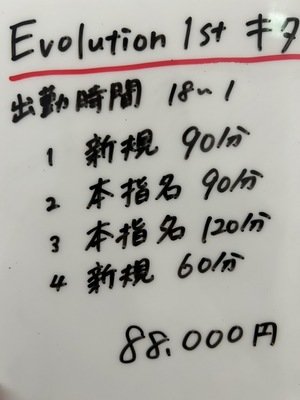 Evolution 1st キタ
出勤時間 18〜1
1 新規 90分
2 本指名 90分
3 本指名 120分
4 新規 60分
88.000円